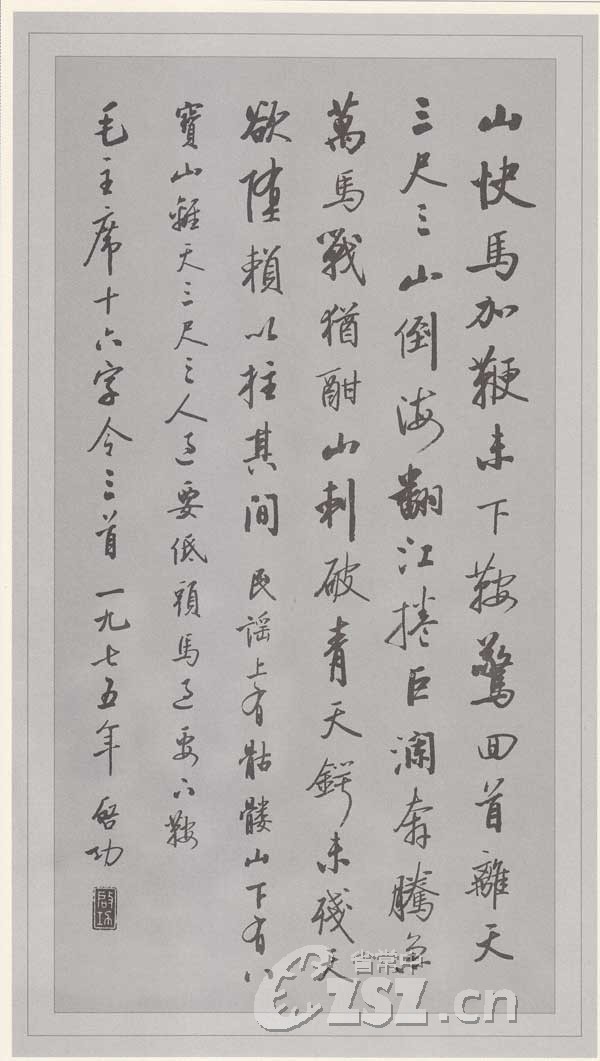 山快馬加鞭未下鞍驚回首離天
三尺三山倒海翻江捲巨瀾奔騰急
萬馬戰猶酣山刺破青天鍔未殘天
欲墮賴以拄其間 民謠上有骷髏山下有八
寶山離天三尺三人過要低頭馬過要下鞍
毛主席十六字令三首一九七五年 啓功
啓功
省常中
CZSZ.cn